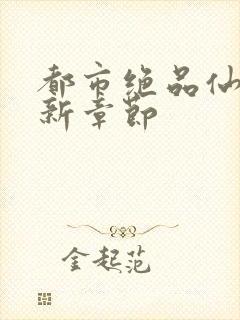 都市绝品仙
新章节
金起范